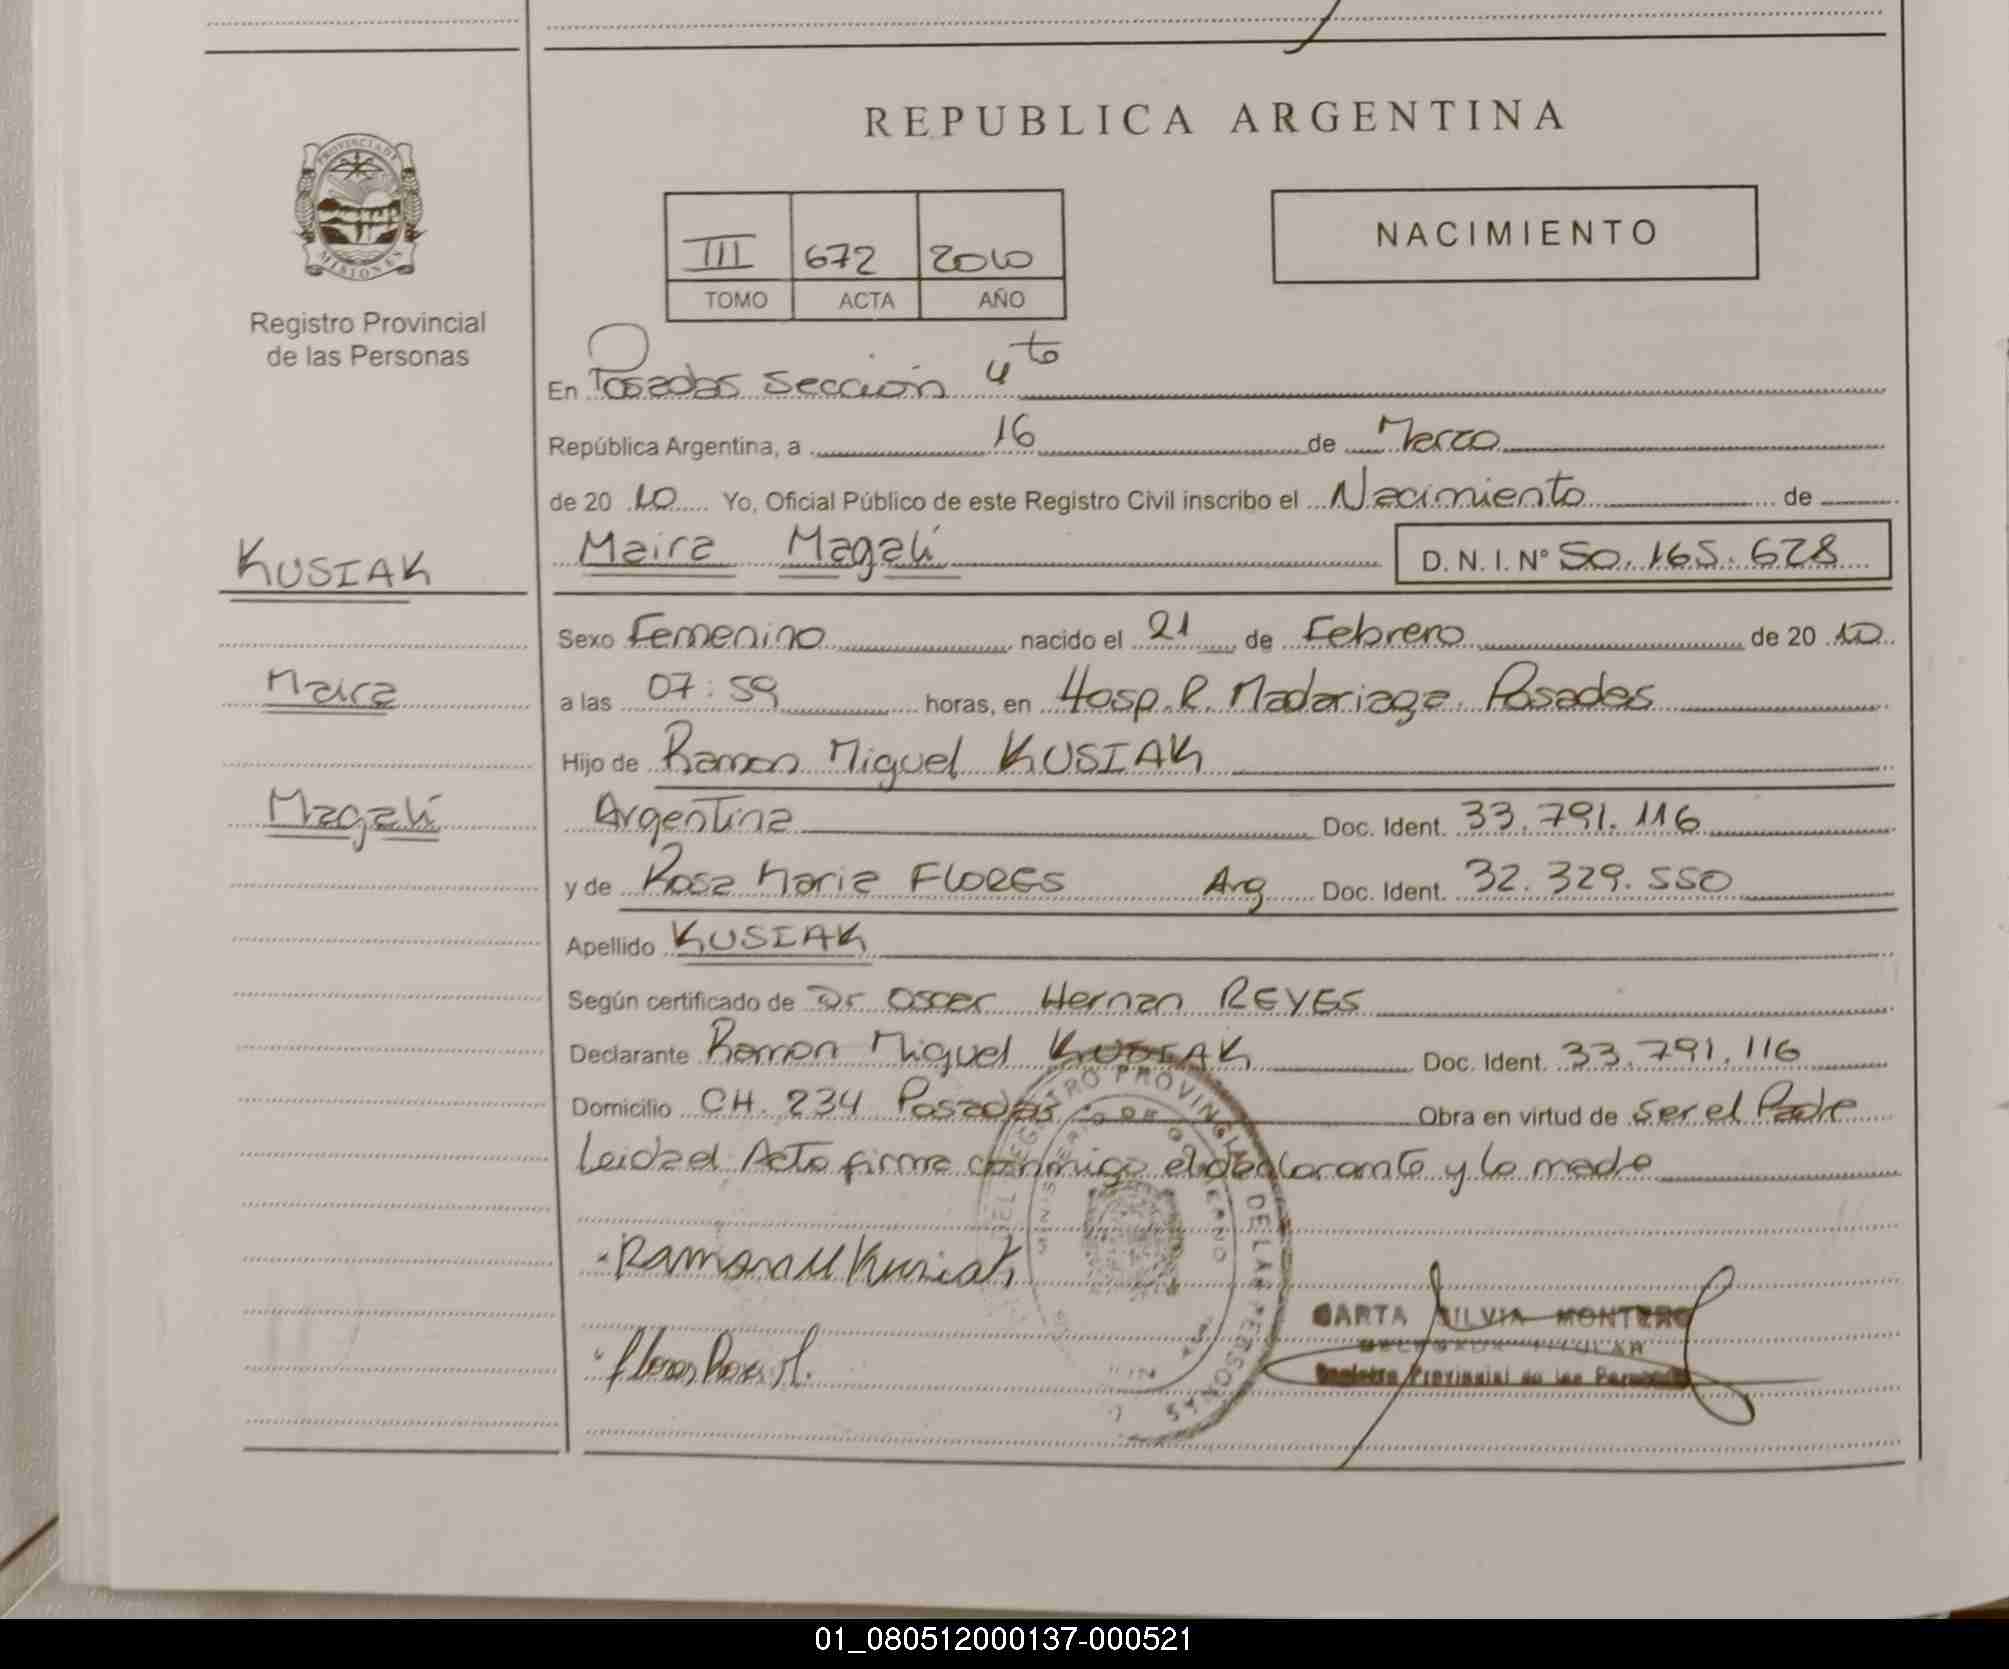 REPUBLICA ARGENTINA
PROVINCIA DE
MISIONES
Registro Provincial
de las Personas
III 672 2010
TOMO ACTA AÑO
NACIMIENTO
En Posadas Sección 4to
República Argentina, a 16 de Marzo
de 2010 Yo, Oficial Público de este Registro Civil inscribo el Nacimiento de
KUSIAK
Maira Magalí D. N. I. Nº 50.165.628
Sexo Femenino nacido el 21 de Febrero de 2010
Maira
a las 07:59 horas, en Hosp. R. Madariaga. Posadas
Hijo de Ramon Miguel KUSIAK
Magalí
Argentina Doc. Ident. 33.791.116
y de Rosa Maria FLORES Arg Doc. Ident. 32.329.550
Apellido KUSIAK
Según certificado de Dr Oscar Hernan REYES
Declarante Ramon Miguel KUSIAK Doc. Ident. 33.791.116
Domicilio CH. 234 Posadas Obra en virtud de Ser el Padre
Leidael Acta firma conmigo el declarante y la madre
Ramon M Kusiak
Flores Rosa M.
SILVIA MONTERO
TITULAR
Registro Provincial de las Personas
01_080512000137-000521